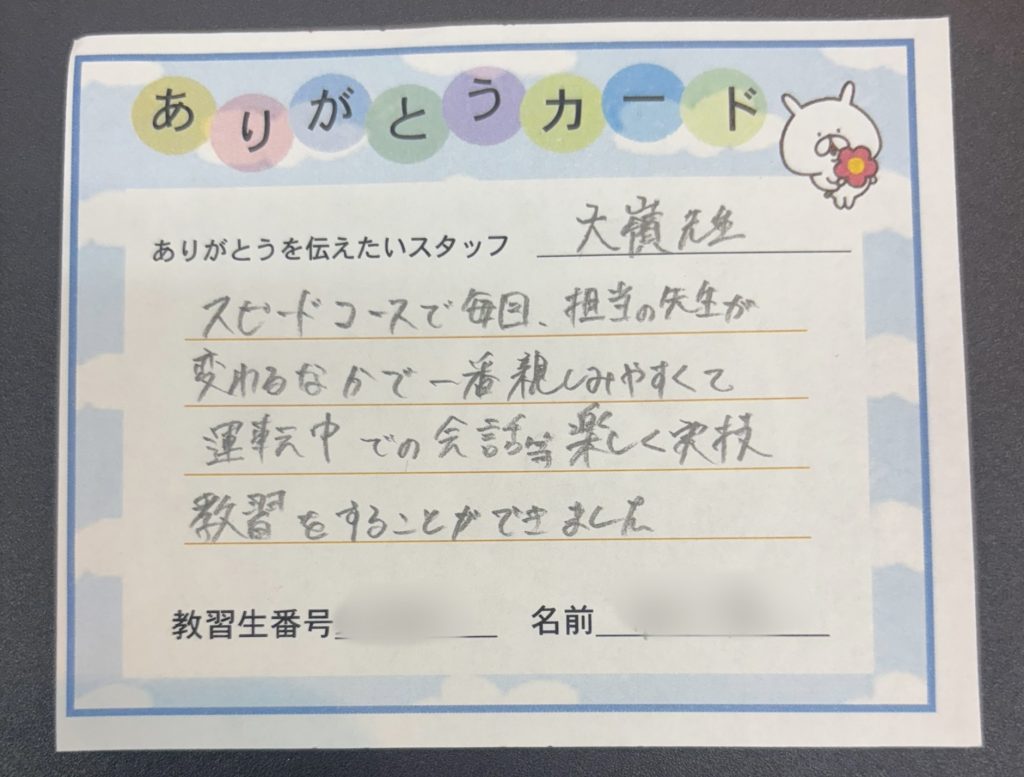 ありがとうカード
ありがとうを伝えたいスタッフ 大嶺先生
スピードコースで毎回、担当の先生が
変わるなかで一番親しみやすくて
運転中での会話等楽しく実技
教習をすることができました
教習生番号 名前